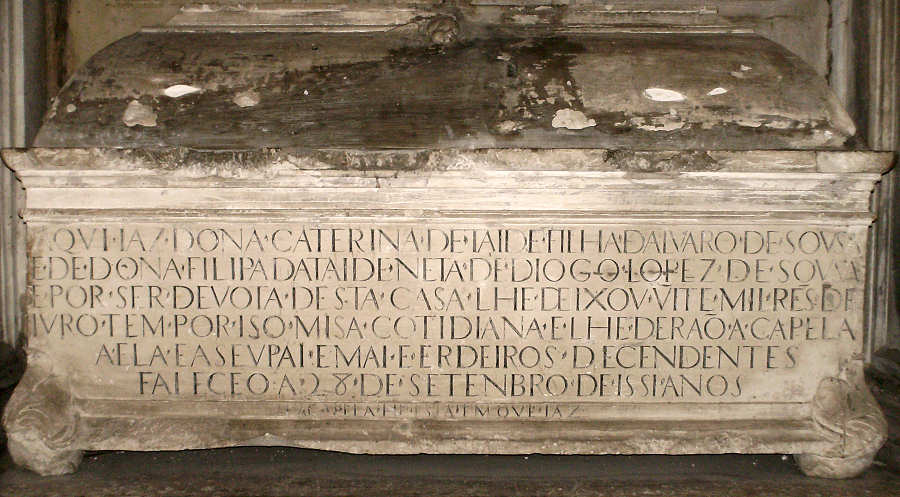 AQVI·IAZ·DONA·CATERINA·DE·TAIDE·FILHA·DALVARO·DE·SOVS
E·DE·DONA·FILIPA·DATAIDE·NETA·DE·DIOGO·LOPEZ·DE·SOVSA
E·POR·SER·DEVOTA·DESTA·CASA·LHE·DEIXOV·VĨTE·MIL·RES·DE
IVRO·TEM·POR·ISO·MISA·COTIDIANA·E·LHE·DERAÕ·A·CAPELA
A·ELA·E·A·SEV·PAI·E·MAI·E·ERDEIROS·DECENDENTES
FALECEO·A·28·DE·SETENBRO·DE·ISSI·ANOS
CAPELA·HE·ESTA·EM·QVE·IAZ